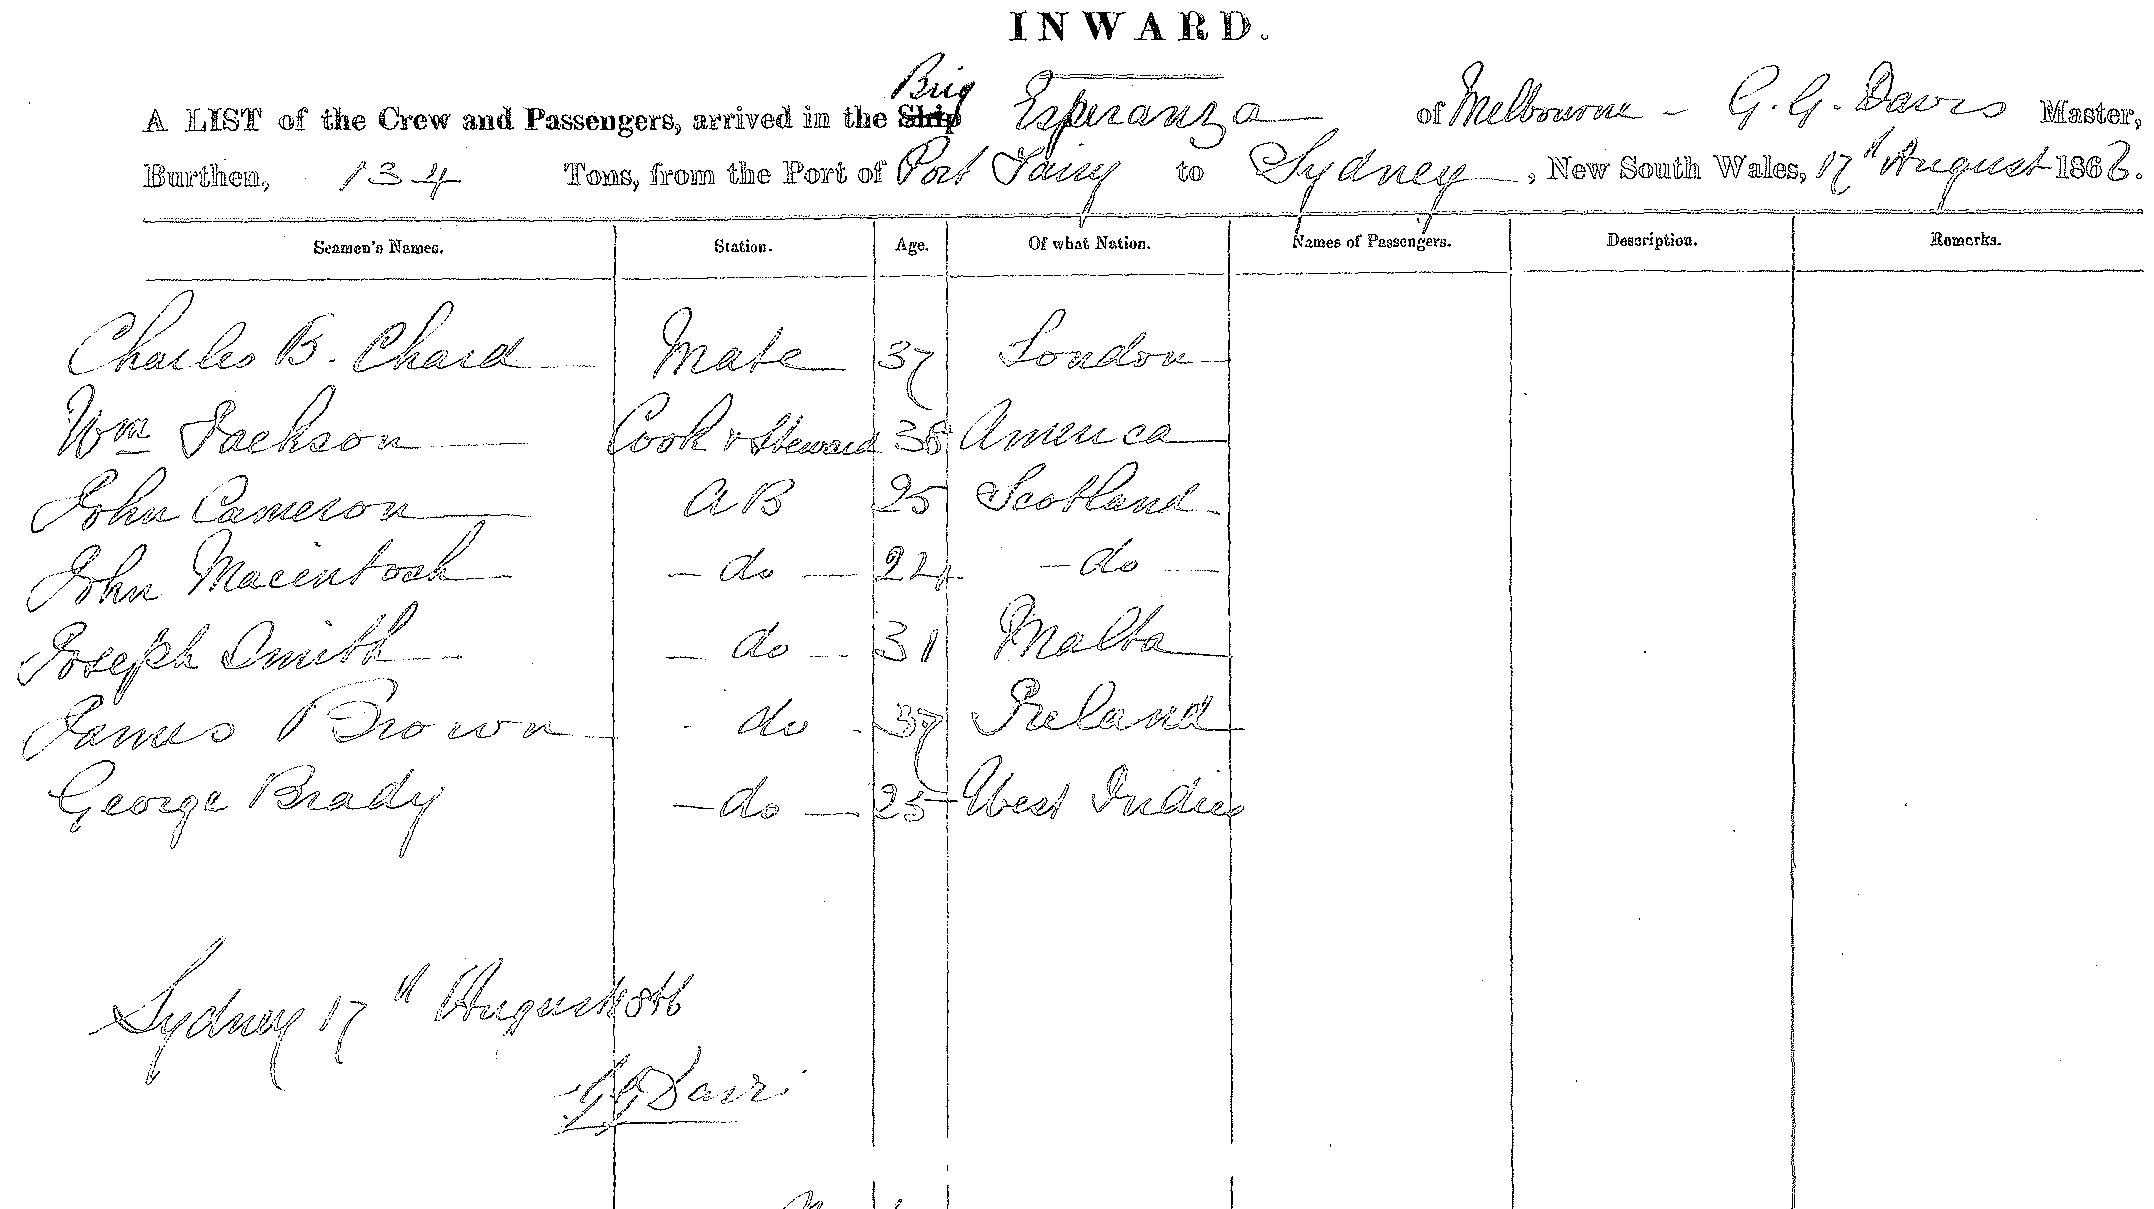 INWARD.
Brig
A LIST of the Crew and Passengers, arrived in the Ship Esperanza of Melbourne - G. G. Davis Master,
Burthen, 134 Tons, from the Port of Port Fairy to Sydney, New South Wales, 17th August 186
Seamen's Names. Station. Age. Of what Nation. Names of Passengers. Description. Remarks.
Charles B. Chard Mate 37 London
Wm Jackson Cook & Steward 38 America
John Cameron AB 25 Scotland
John Macintosh do 24 do
Joseph Smith do 31 Malta
James Brown do 37 Ireland
George Brady do 25 West Indies
Sydney 17th August
G G Davis